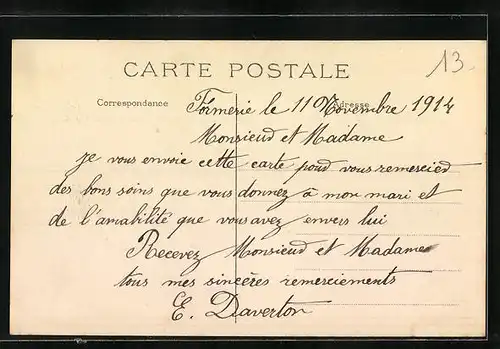 13
CARTE POSTALE
Correspondance
Adresse
Formerie le 11 Novembre 1914
Monsieud et Madame
je vous envoie cette carte poud vous remercied
des bons soins que vous donnez à mon mari et
de l'amabilité que vous avez envers lui
Recevez Monsieud et Madame
tous mes sincères remerciements
E. Daverton